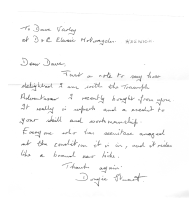 To Dave Varley
at D & R Classic Motorcycles
Dear Dave,
Just a note to say how
delighted I am with the Triumph
Adventurer I recently bought from you.
It really is superb and a credit to
your skill and workmanship.
Everyone who has seen it are amazed
at the condition it is in, and it rides
like a brand new bike.
Thanks again
Stewart